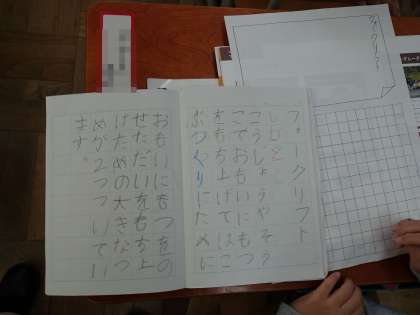 フォークリフト
フォークリフト
しごと
こうじょうやそう
こでおもいにもつ
をもち上げてはこ
ぶつくりにために
おもいにもつをの
せただいをもち上
げための大きなつ
めが2つついてい
ます。